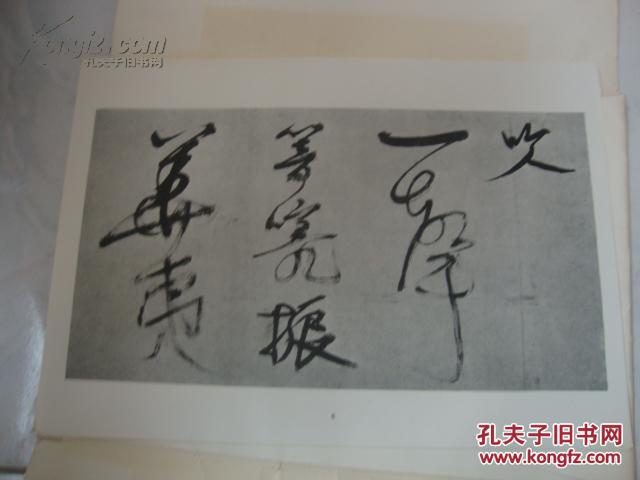 kongfz.com
孔夫子旧书网
吹
一聲
振
華夷
孔夫子旧书网
www.kongfz.com